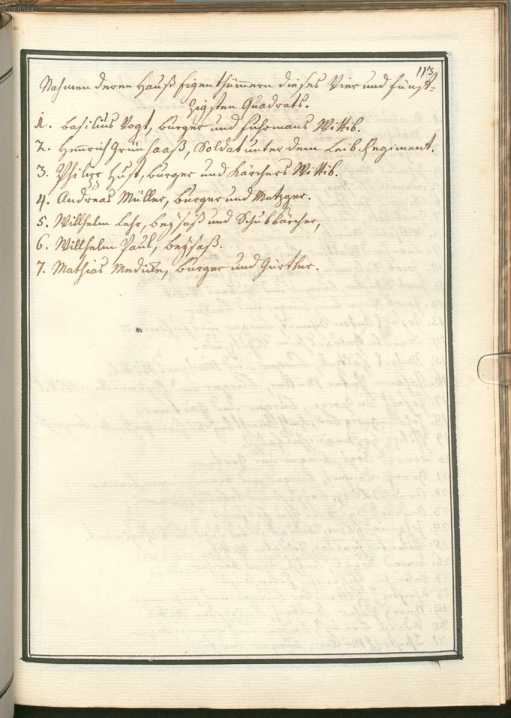 113.
Nahmen deren Hauß Eigenthümmern dieses Vier und fünff-
zigsten Quadrats.
1. Basilius Vogt, burger und fuhrmans Wittib.
2. Henrich Grün Saaß, Soldat unter dem Leib Regiment.
3. Philipp Hust, burger und Kärchers Wittib.
4. Andreas Müller, burger und Metzger.
5. Willhelm Lehr, beysaß und Schubkärcher,
6. Willhelm Paul, beysaß.
7. Mathias Medicu, burger und Gürtler.